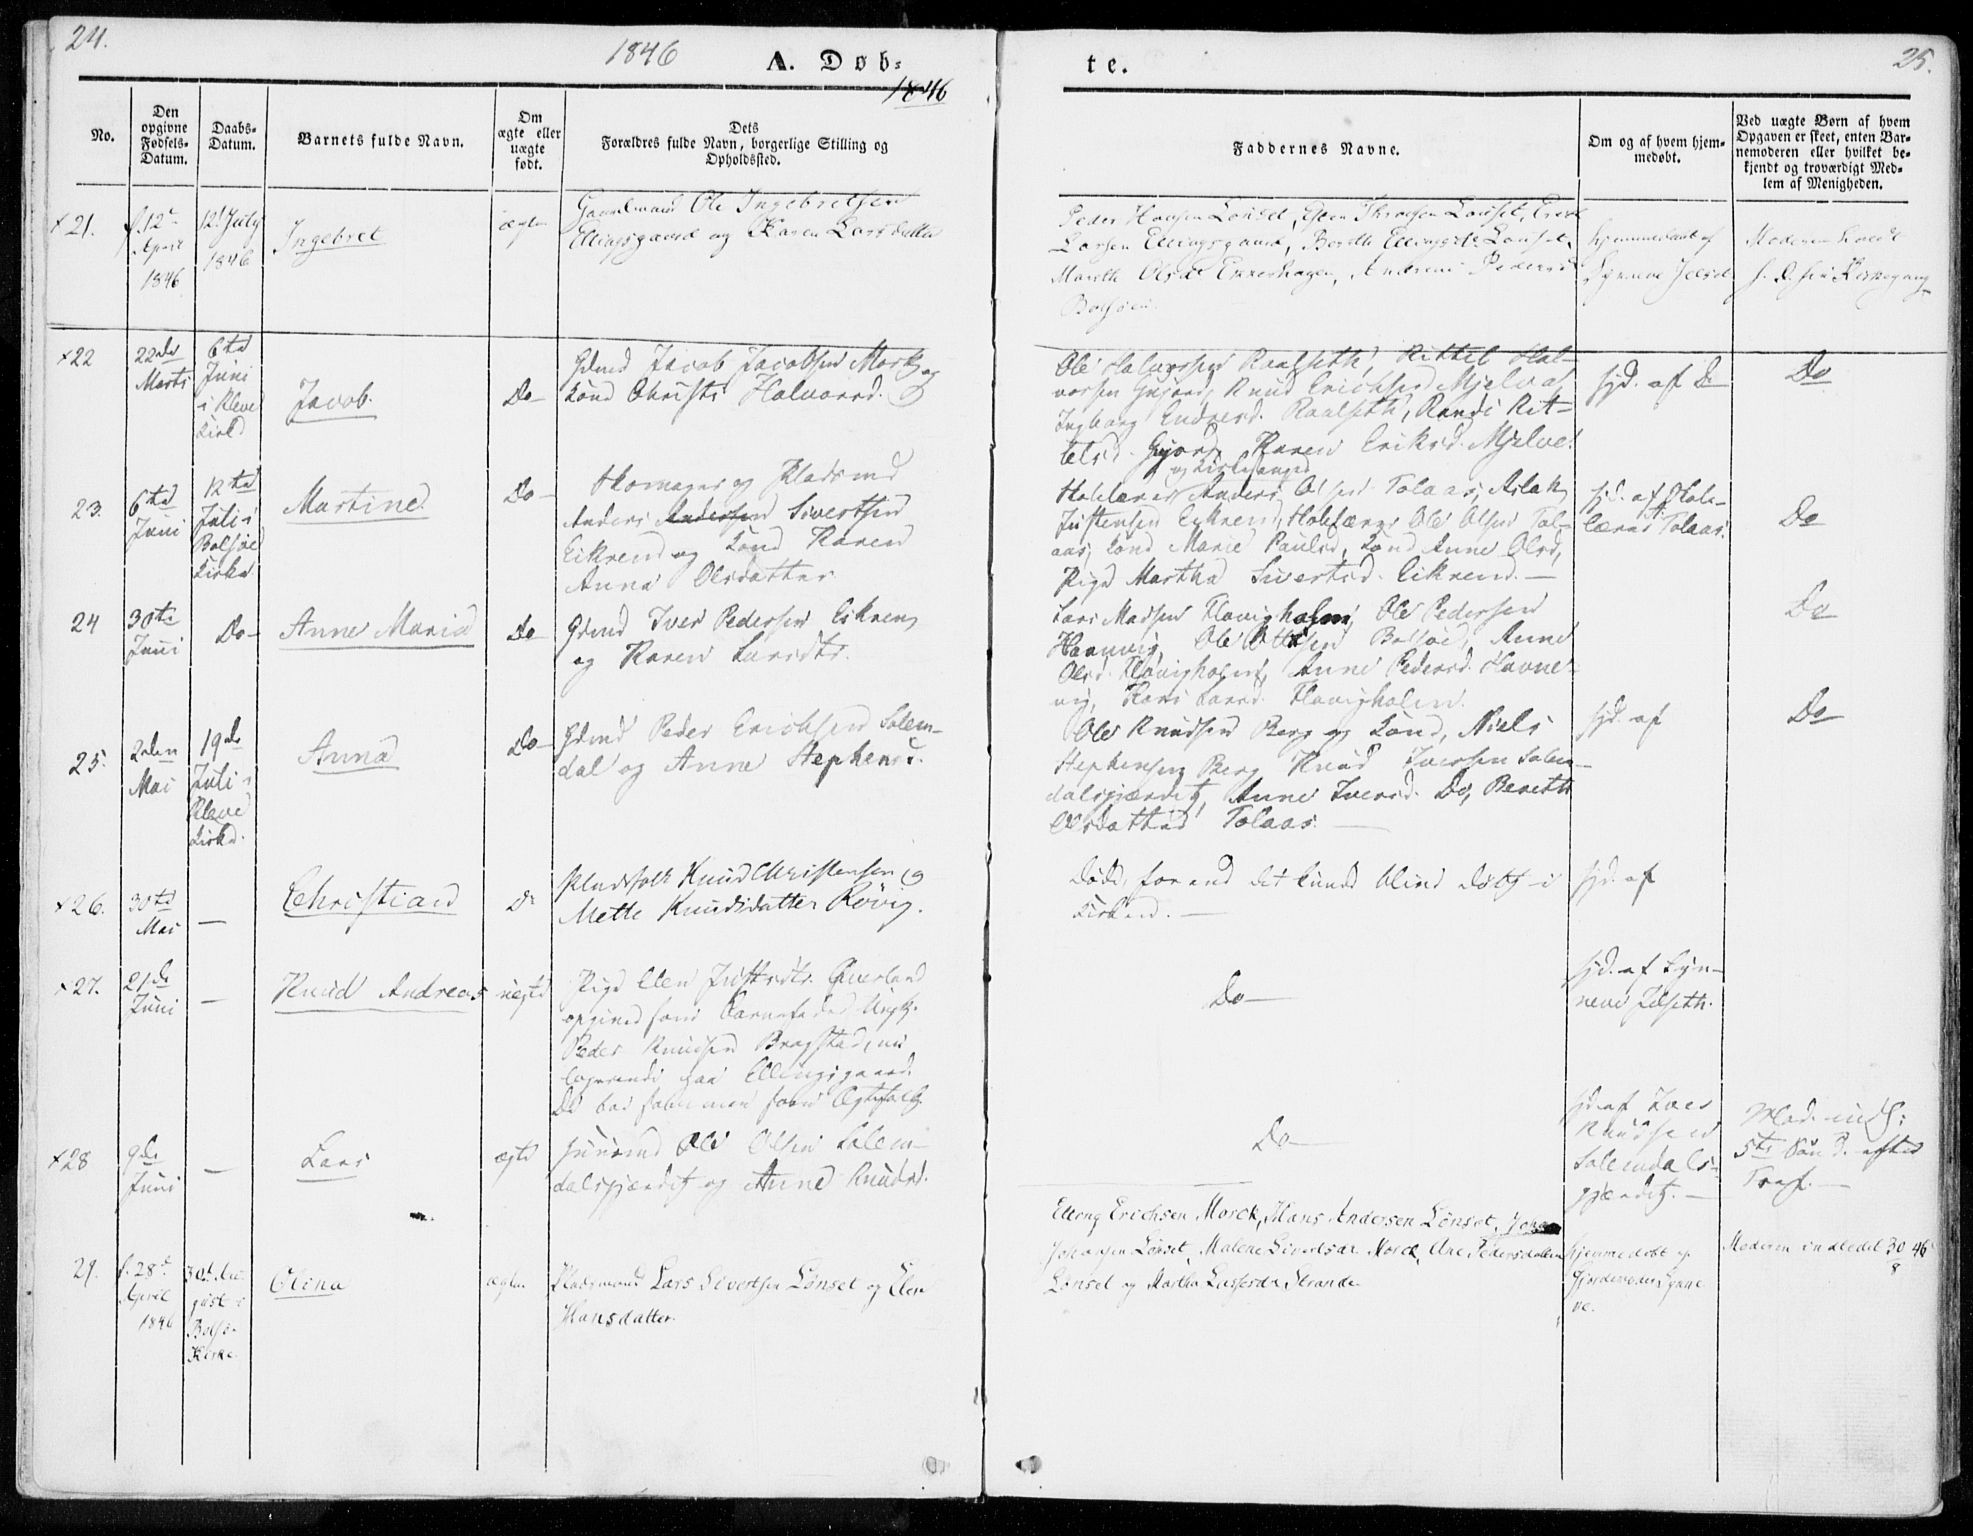 24.
1846
A. Døb-
1846
te.
25.
No.
Den opgivne Fødsels-Datum.
Daabs-Datum.
Barnets fulde Navn.
Om ægte eller uægte født.
Dets Forældres fulde Navn, borgerlige Stilling og Opholdssted.
Faddernes Navne.
Om og af hvem hjem-medøbt.
Ved uægte Børn af hvem Opgaven er skeet, enten Bar-nemoderen eller hvilket be-kjendt og troværdigt Med-lem af Menigheden.
×21.
f. 12te
April
1846
12t. July
1846
Ingebret
ægte
Gaardmand Ole Ingebretsen
Ellingsgaard og Karen Larsdatter
Peder Hansen Lønset, Lønset,
Larsen Ellingsgaard, Lønset,
Marith Olsdr
Bolsøen.
hjemmedøbt af
Synneve
Moderen
Kirkegang
×22
22de
Marts
6te
Juni
i Kleve
Kirke
Jacob.
Do
Gdmd Jacob Jacobsen Mork og
Kone Christi Halvorsd.
Ole Halvorsen Raalseth, Kittel Hal-
vorsen Gujord, Knud Erichsen Mjelve,
Ingborg Raalseth, Randi Kit-
telsd. Gujord, Karen Eriksd. Mjelve.
hjd. af Do
Do
23.
6te
Juni
12te
Juli i
Bolsøe
Kirke
Martine
Do
Skomager og Pladsmd
Anders Andersen Sivertsen
Eikrem og Kone Karen
Anna Olsdatter
og Kirkesanger
Skolelærer Anders Olsen Tolaas, Aslak
Justensen Eikrem, Ole Olsen Tol-
aas, Kone Marie Paulsd, Kone Anne Olsd,
Pige Martha Sivertsd. Eikrem.
hjd. af Skole-
lærer A. Tolaas.
Do
24
30te
Juni
Do
Anne Maria
Do
Gdmd Iver Pedersen Eikrem
og Karen Larsdtr.
Lars Madsen Flovigholm, Ole Pedersen
Havnevig, Ole Bolsøe, Anne
Olsd. Flovigholm, Anne Pedersd. Havne-
vig, Kari Larsd. Flovigholm.
Do
25.
2den
Mai
19de
Juli i
Kleve
Kirke.
Anna
Do
Gdmd Peder Erichsen Solem-
dal og Anne Stephensd.
Ole Knudsen Berg og Kone, Niels
Stephensen Berg, Knud Iversen Solem-
dalsgjærdet, Anne Iversd. Do, Bereth
Olsdatter Tolaas.
hjd. af
Do
×26.
30te
Mai
—
Christian
Do
Pladsfolk Knud Christensen og
Mette Knudsdatter Røvig.
Døde, forend det kunde blive døbt i
Kirken.
hjd. af
×27.
21de
Juni
—
Knud Andreas
uægte
Pige Elen Øverland
opgived som Barnefader Ungk.
Peder Knudsen Bragstad, nu
logerende paa Ellingsgaard.
De boe sammen som Ægtefolk.
Do
hjd. af Syn-
neve
×28
9de
Juni
—
Lars
ægte
Huusmd Ole Olsen Solem-
dalsgjærdet og Anne Knudsd.
Do
hjd. af Iver
Knudsen
Solemdals-
gjærdet.
Mod. indl:
5te Sønd. efter
Tref.
29.
f. 28de
April
1846
30t. Au-
gust i
Bolsø
Kirke.
Olina
ægte
Pladsmand Lars Sivertsen Lønset og Elen
Hansdatter.
Elling Erichsen Morck, Hans Andersen Lønset,
Johansen Lønset, Malene Sivertsdr Morck, Ane Pedersdatter
Lønset og Martha Strande
hjemmedøbt af
Moderen indledet 30/8 46